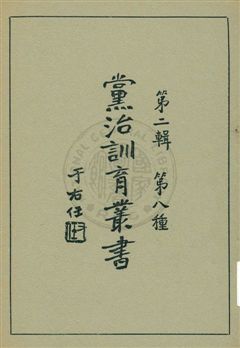 第二輯 第八種
黨治訓育叢書
于右任